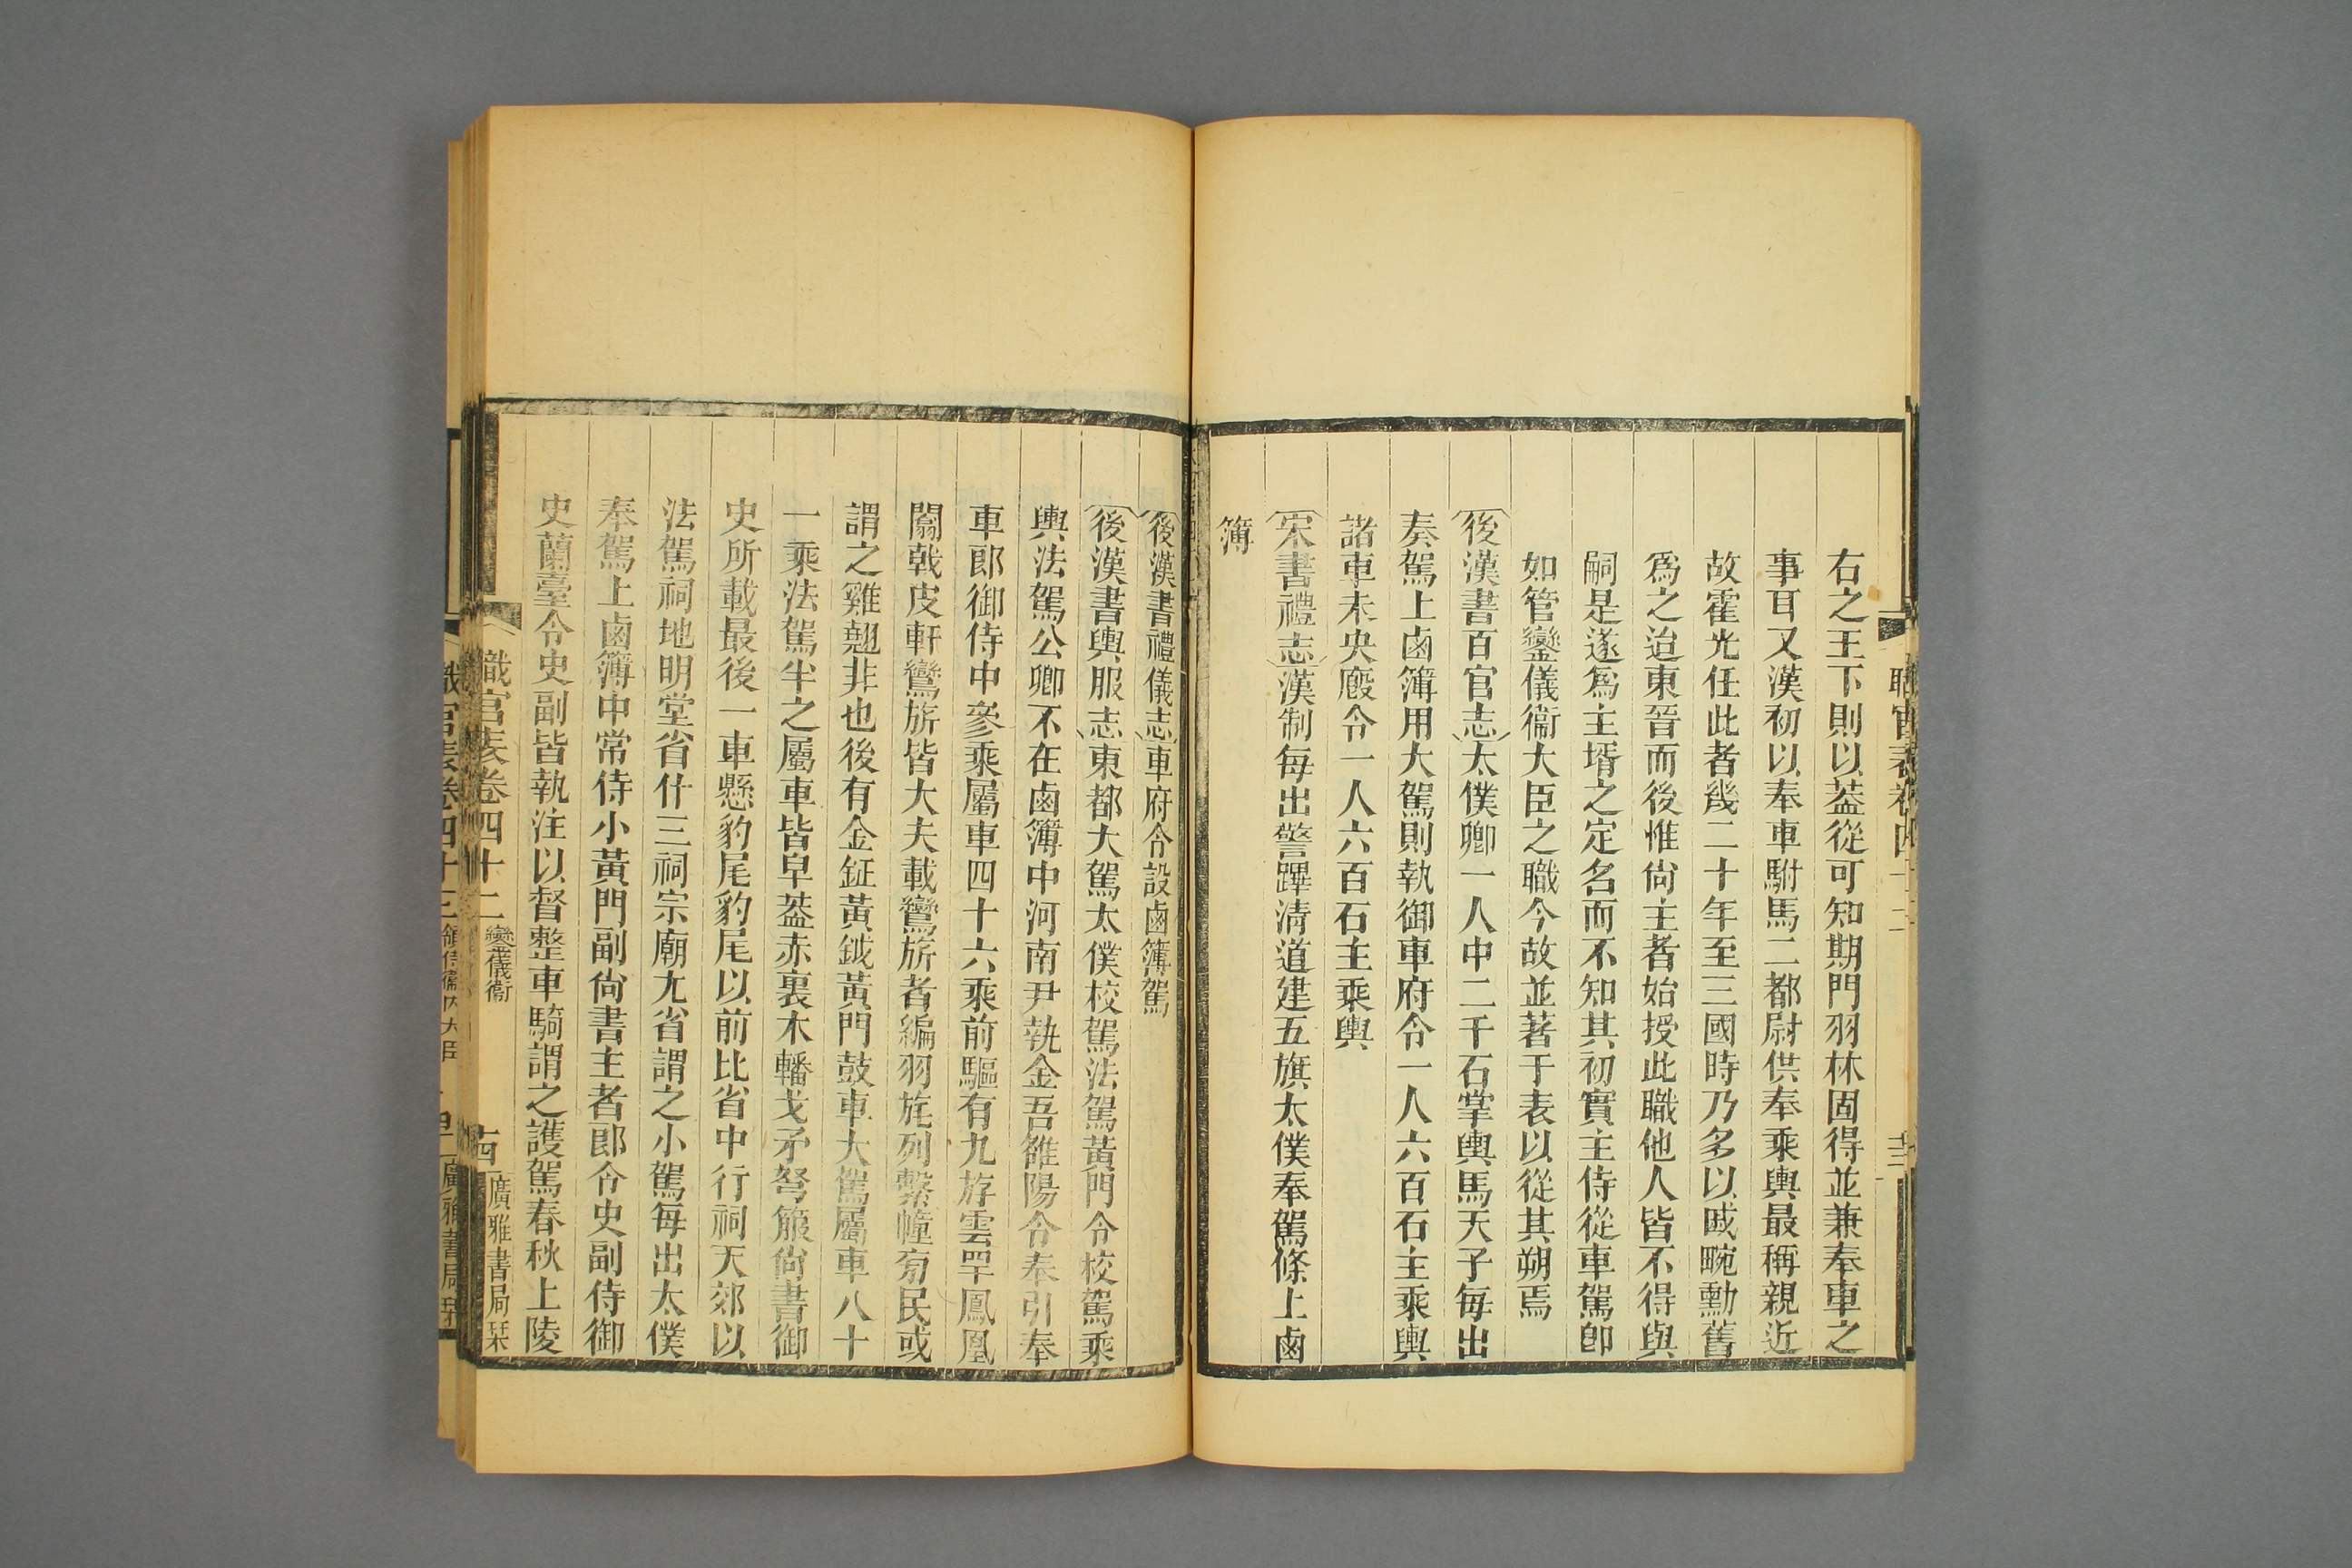 右之王下則以葢從可知期門羽林固得並兼奉車之
事耳又漢初以奉車駙馬二都尉供奉乘輿最稱親近
故霍光任此者幾二十年至三國時乃多以戚畹勳舊
爲之迨東晉而後惟尙主者始授此職他人皆不得與
嗣是遂爲主壻之定名而不知其初實主侍從車駕卽
如管鑾儀衞大臣之職今故並著于表以從其朔焉
後漢書百官志太僕卿一人中二千石掌輿馬天子每出
奏駕上鹵簿用大駕則執御車府令一人六百石主乘輿
諸車未央廐令一人六百石主乘輿
宋書禮志漢制每出警蹕淸道建五旗太僕奉駕條上鹵
簿
後漢書禮儀志車府令設鹵簿駕
後漢書輿服志東都大駕太僕校駕法駕黃門令校駕乘
輿法駕公卿不在鹵簿中河南尹執金吾雒陽令奉引奉
車郎御侍中參乘屬車四十六乘前驅有九斿雲罕鳳凰
闟戟皮軒鸞旂皆大夫載鸞旂者編羽旄列繫幢旁民或
謂之雞翹非也後有金鉦黃鉞黃門鼓車大駕屬車八十
一乘法駕半之屬車皆皁葢赤裏木轓戈矛弩箙尙書御
史所載最後一車懸豹尾豹尾以前比省中行祠天郊以
法駕祠地明堂省什三祠宗廟尤省謂之小駕每出太僕
奉駕上鹵簿中常侍小黃門副尙書主者郎令史副侍御
史蘭臺令史副皆執注以督整車騎謂之護駕春秋上陵
職官表卷四十二 鑾儀衞 古 廣雅書局栞